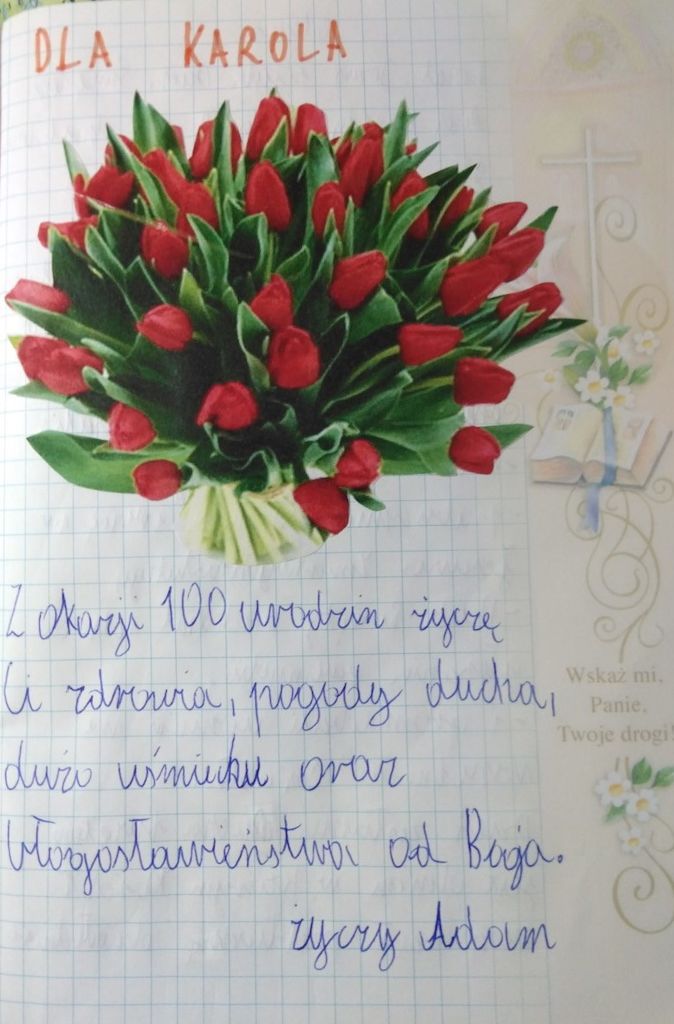 DLA KAROLA
Z okazji 100 urodzin życzę
Ci zdrowia, pogody ducha,
dużo uśmiechu oraz
błogosławieństwa od Boga.
życzy Adam
Wskaż mi,
Panie,
Twoje drogi!